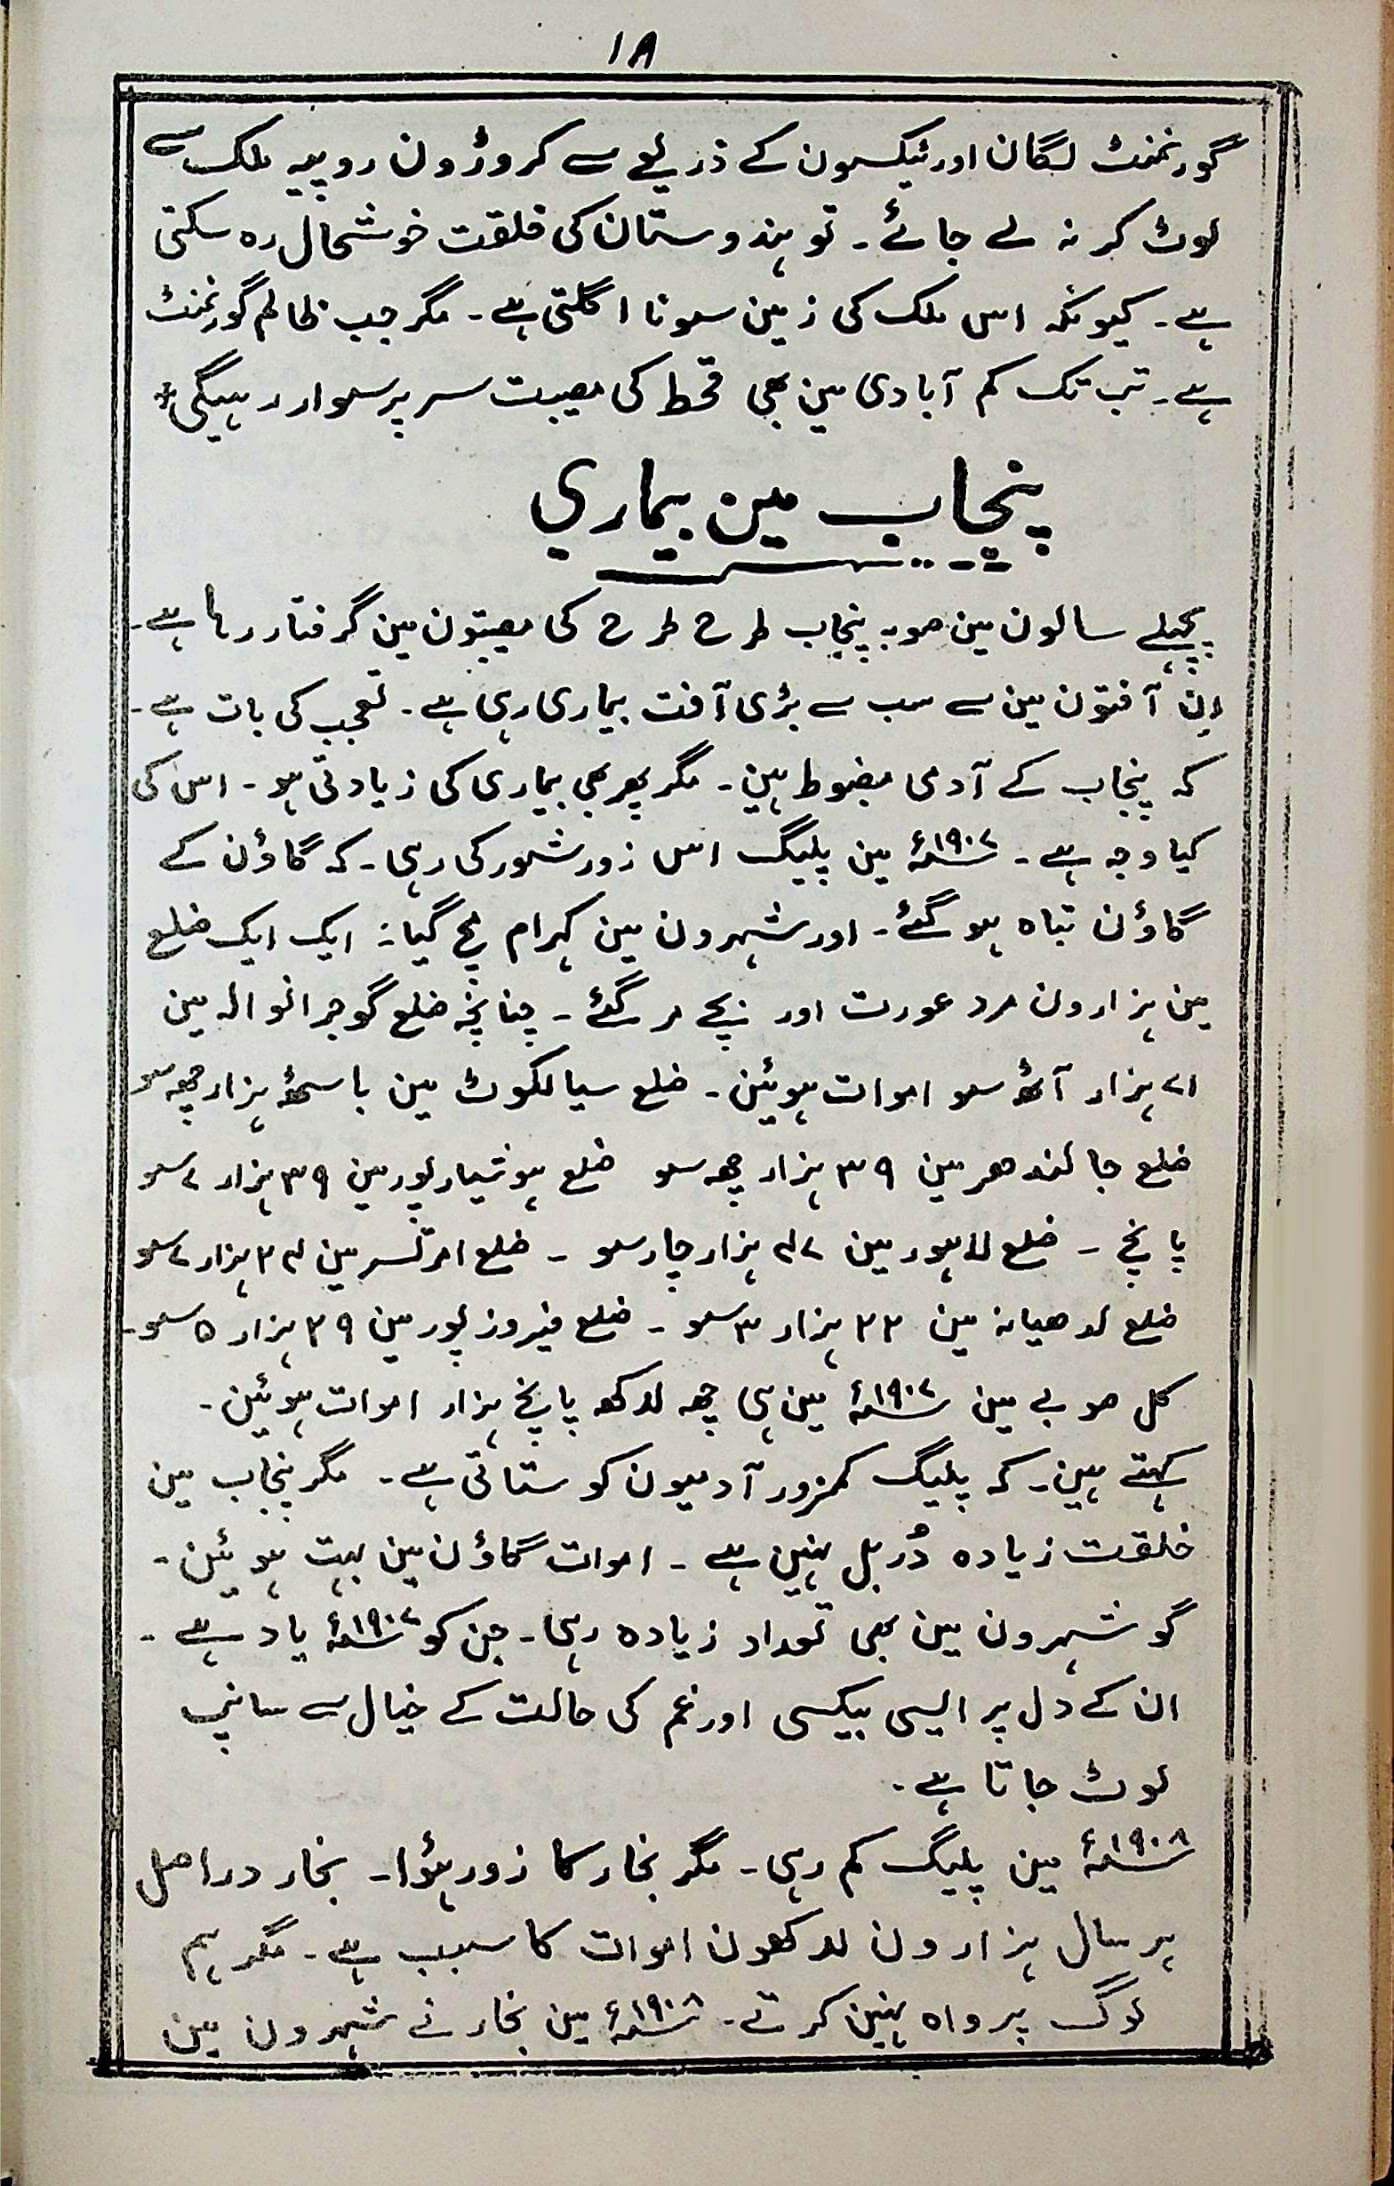 ۱۸
گورنمنٹ لگان اور ٹیکسون کے ذریعے سے کروڑون روپیہ ملک سے
لوٹ کر نہ لے جائے۔ تو ہندوستان کی خلقت خوشحال رہ سکتی
ہے۔ کیونکہ اس ملک کی زمین سونا اگلتی ہے۔ مگر جب ظالم گورنمنٹ
ہے۔ تب تک کم آبادی مین بھی قحط کی مصیبت سر پر سوار رہیگی*
پنجاب مین بیماری
پچھلے سالون مین صوبہ پنجاب طرح طرح کی مصیبتون مین گرفتار رہا ہے۔
اِن آفتون مین سے سب سے بڑی آفت بیماری رہی ہے۔ تعجب کی بات ہے۔
کہ پنجاب کے آدمی مضبوط ہین۔ مگر پھر بھی بیماری کی زیادتی ہو۔ اس کی
کیا وجہ ہے۔ ۱۹۰۷ء مین پلیگ اس زور شور کی رہی۔ کہ گاؤن کے
گاؤن تباہ ہو گئے۔ اور شہرون مین کہرام مچ گیا: ایک ایک ضلع
مین ہزارون مرد عورت اور بچے مر گئے۔ چنانچہ ضلع گوجرانوالہ مین
۷۱ ہزار آٹھ سو اموات ہوئین۔ ضلع سیالکوٹ مین باسٹھ ہزار چھ سو
ضلع جالندھر مین ۳۹ ہزار چھ سو ضلع ہوشیارپور مین ۳۹ ہزار ۷ سو
پانچ۔ ضلع لاہور مین ۴۷ ہزار چار سو۔ ضلع امرتسر مین ۲۴ ہزار ۷ سو
ضلع لدھیانہ مین ۲۲ ہزار ۳ سو۔ ضلع فیروزپور مین ۲۹ ہزار ۵ سو۔
کل صوبے مین ۱۹۰۷ء مین ہی چھ لاکھ پانچ ہزار اموات ہوئین۔
کہتے ہین۔ کہ پلیگ کمزور آدمیون کو ستاتی ہے۔ مگر پنجاب مین
خلقت زیادہ دُربل نہین ہے۔ اموات گاؤن مین بہت ہوئین۔
گو شہرون مین بھی تعداد زیادہ رہی۔ جن کو ۱۹۰۷ء یاد ہے۔
ان کے دل پر ایسی بیکسی اور غم کی حالت کے خیال سے سانپ
لوٹ جاتا ہے۔
۱۹۰۸ء مین پلیگ کم رہی۔ مگر بخار کا زور ہؤا۔ بخار دراصل
ہر سال ہزارون لاکھون اموات کا سبب ہے۔ مگر ہم
لوگ پرواہ نہین کرتے۔ ۱۹۰۸ء مین بخار نے شہرون مین